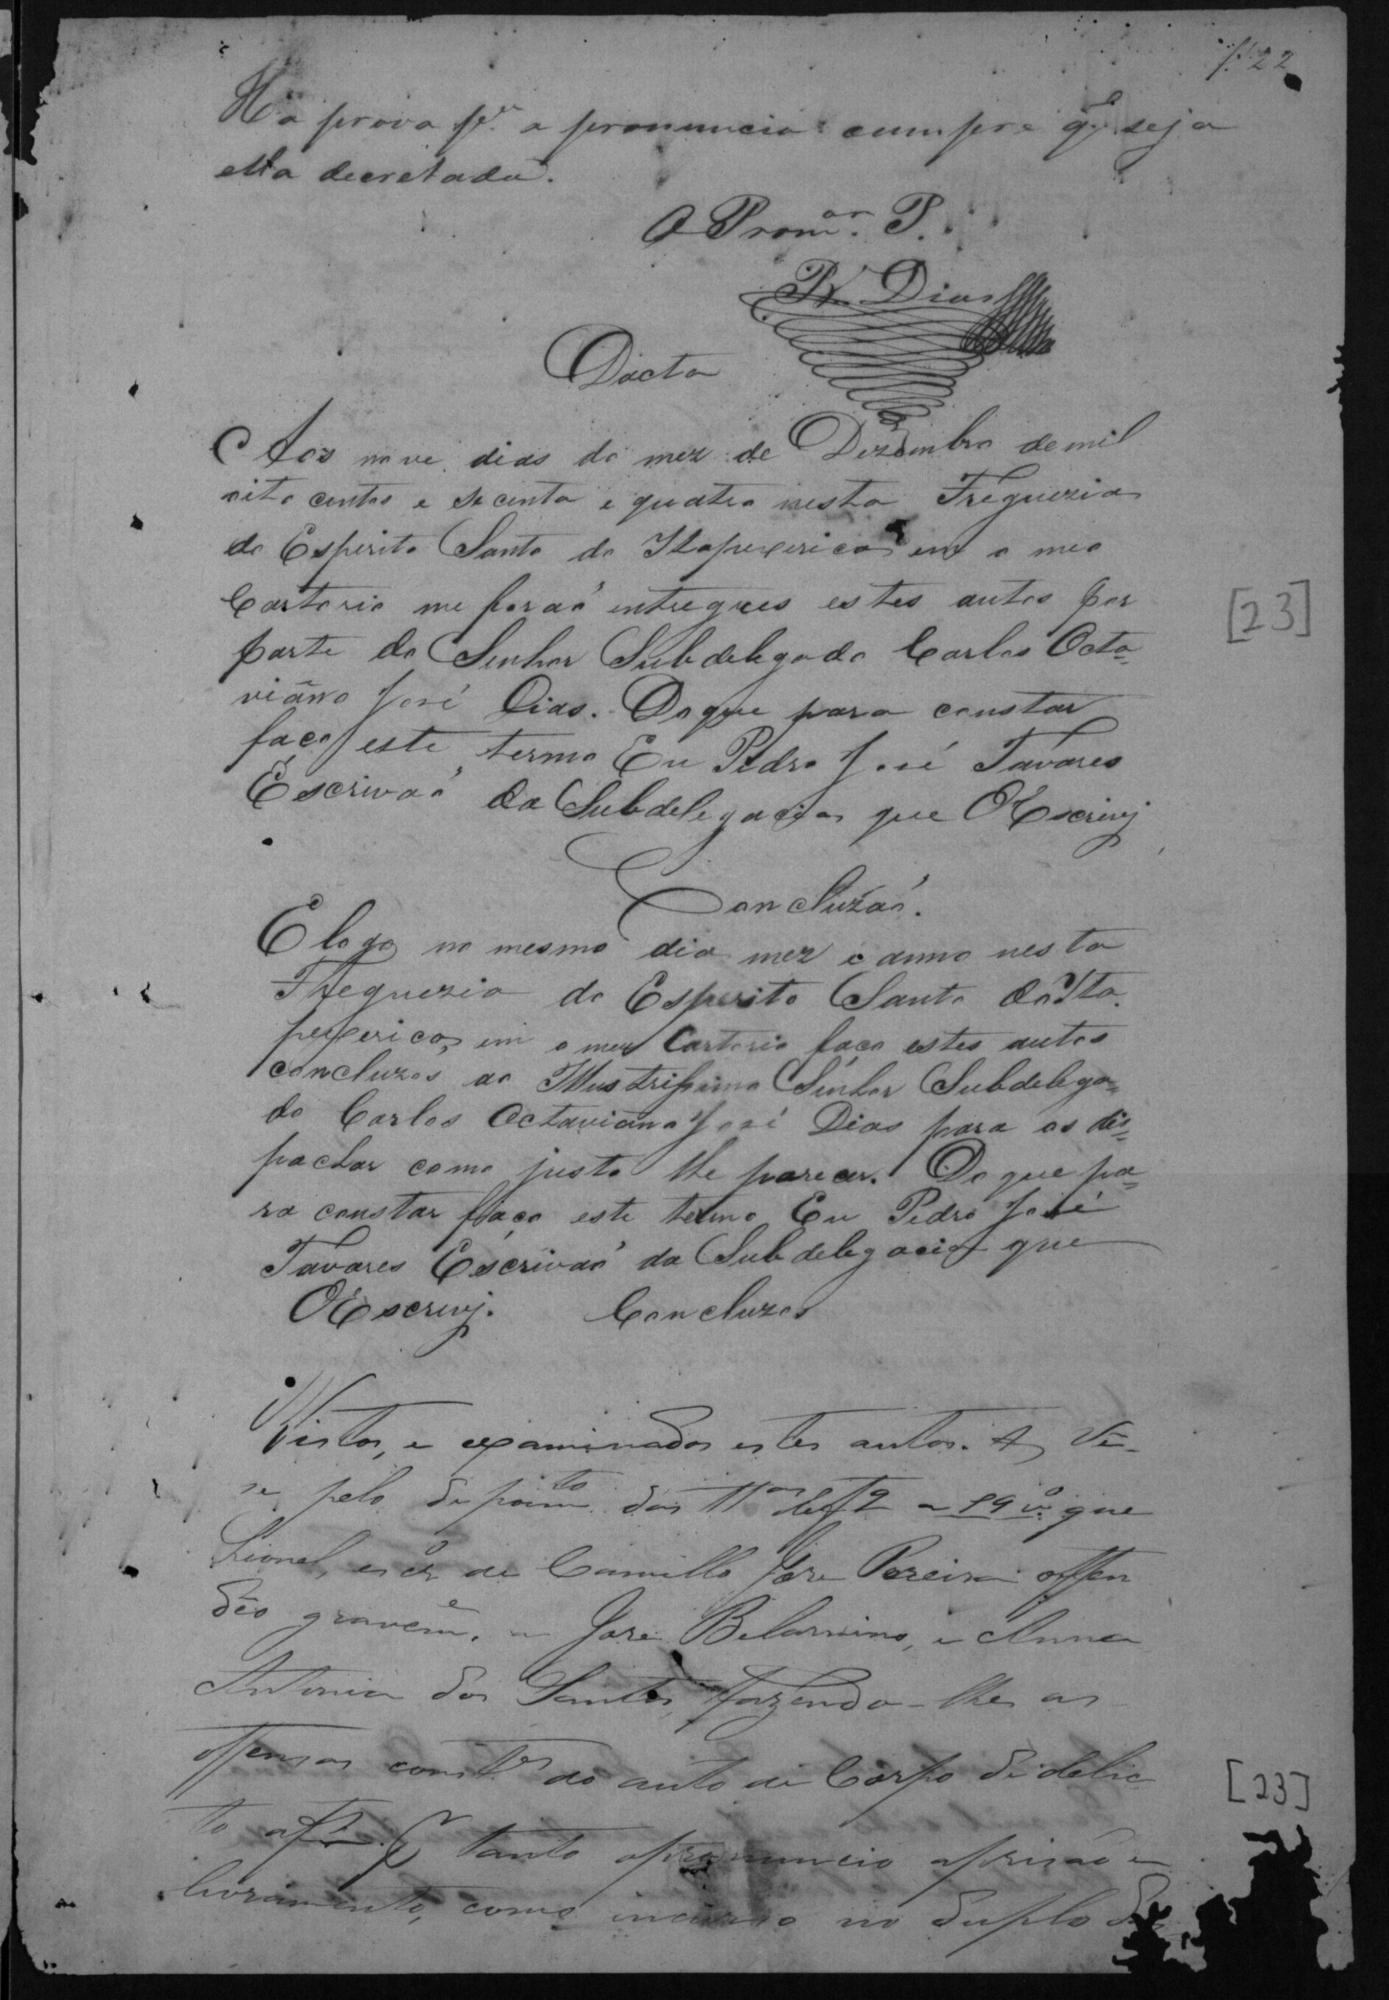 f. 22
Ha prova pa. a pronuncia: cumpre q̃ seja
ella decretada.
O Promor. P.
Dias
Dacta
Aos nove dias do mez de Dezembro de mil
oito centos e secenta e quatro nesta Freguezia
do Esperito Santo da Itapecerica em o meo
Cartorio me foraõ entregues estes autos por
parte do Senhor Subdelegado Carlos Octa=
viãno José Dias. Do que para constar
faço este termo Eu Pedro José Tavares
Escrivaõ da Subdelegacia que O Escrivj
Concluzaõ.
E logo no mesmo dia mez e anno nesta
Freguezia do Esperito Santo da Ita
pecerica, em o meu Cartorio faço estes autos
concluzos ao Illustrissimo Senhor Subdelega=
do Carlos Octaviãno José Dias para os dis=
pachar como justo lhe parecer. Do que pa=
ra constar faço este termo Eu Pedro José
Tavares Escrivaõ da Subdelegacia que
O Escrivj. Concluzos
Vistos, e examinados estes autos. Vê-
se pelo depoimto das Tas de f 9 a 19 vo que
Lionel, escro de Camillo José Pereira offen
déo gravemẽ. a José Belarmino, e Anna
Antonia dos Santos, fazendo-lhes as
offensas constes do auto de Corpo de delic
to a f tanto o pronuncio a prisaõ e
livramento, como incurso no duplo de
[23]
[23]